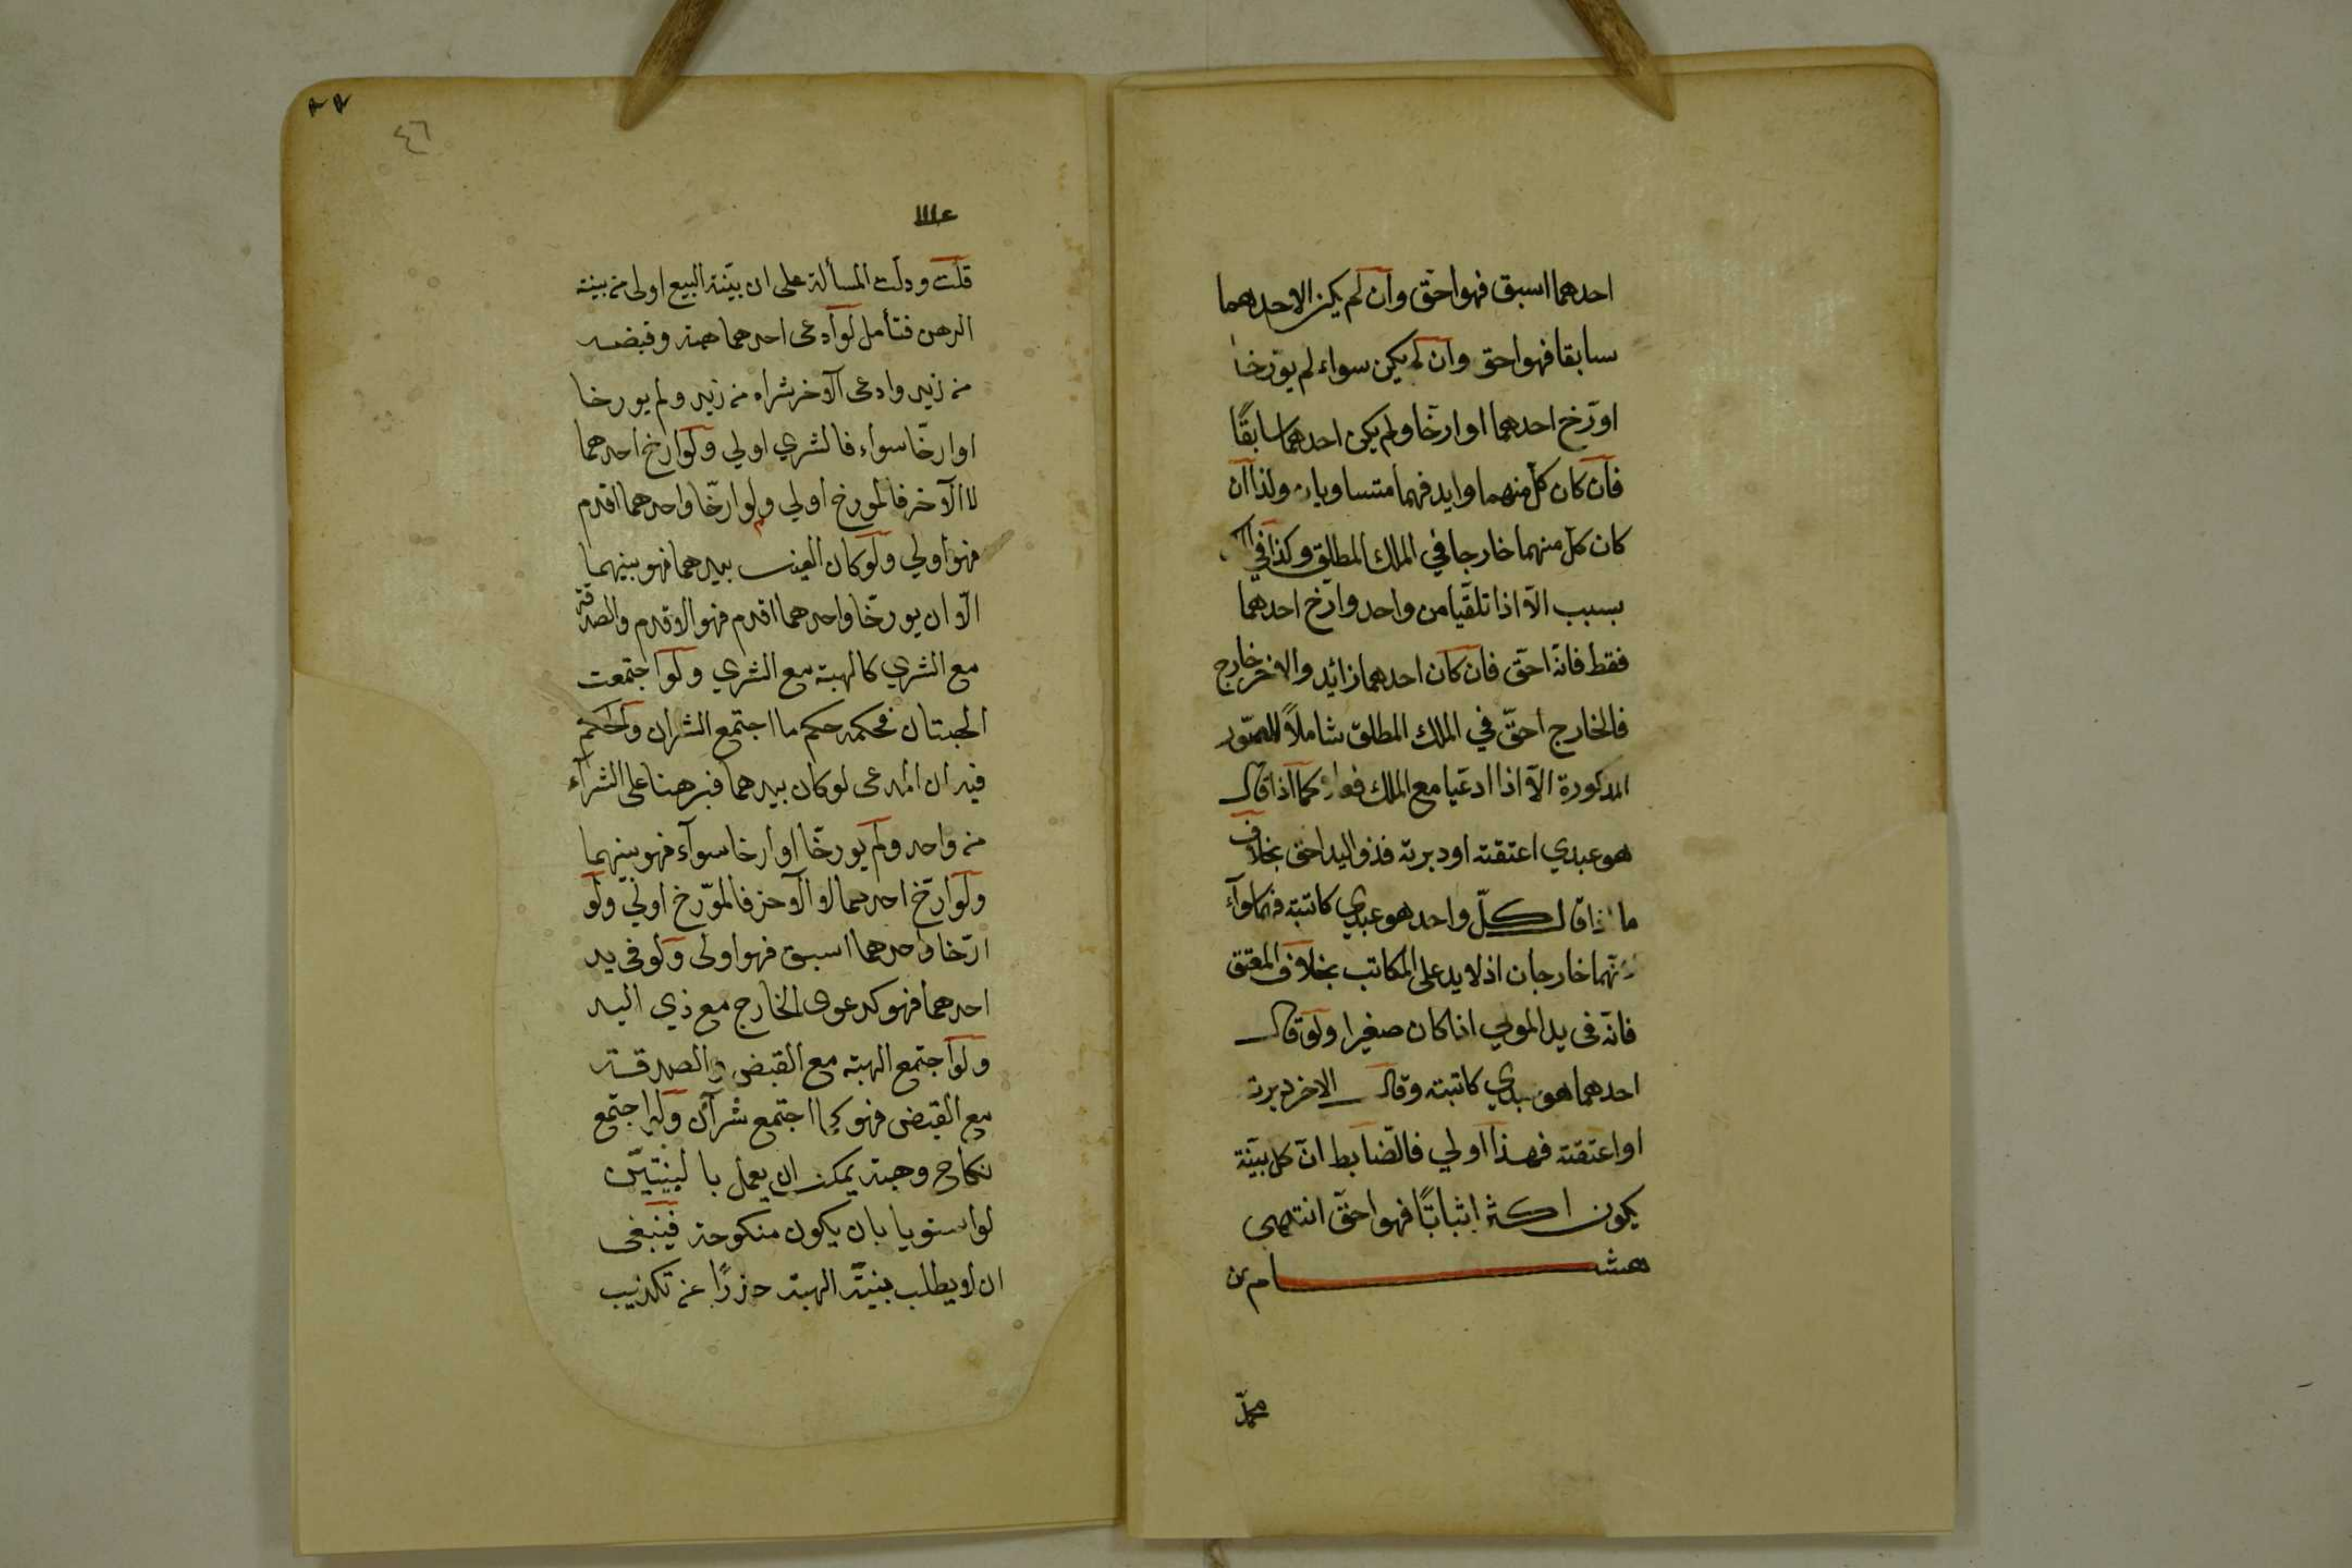 احدهما اسبق فهو احق وان لم يكن الاحدهما
سابقا فهو احق وان لم يكن سواء لم يؤرخا
او رّخ احدهما او ارخا ولم يكن احدهما سابقًا
فان كان كل منهما وايد فهما متساويان ولذا ان
كان كل منهما خارجا في الملك المطلق وكذا في
بسبب الا اذا تلقيا من واحد وارّخ احدهما
فقط فانه احق فان كان احدهما زائيد والاخر خارج
فالخارج احقّ في الملك المطلق شاملاً للصّور
المذكورة الا اذا ادعيا مع الملك كما اذا قال
هو عبدي اعتقته او دبرته فذو اليد احق بخلاف
ما اذا قال كلّ واحد هو عبدي كاتبته فهما سوآء
لانهما خارجان اذ لا يد على المكاتب بخلاف المعتق
فانه في يد المولي اذا كان صغيرا ولو قال
احدهما هو عبدي كاتبته وقال الاخر دبرته
او اعتقته فهذا اولي فالضابط انّ كل بيّنة
يكون اكثر اثباتًا فهو احقّ انتهي
هشام من
٤٦
قلت ودلت المسألة على ان بيّنة البيع اولى من بينة
الرهن فتأمل لو ادعى احدهما هبة وقبضه
من زيد وادعى الآخر شراه من زيد ولم يورخا
او ارخّا سواء فالشري اولي ولو ارخ احدهما
لا الآخر فالمورخ اولي ولو ارخّا واحدهما اقدم
فهو اولي ولو كان العين بيدهما فهو بينهما
الّا ان يورخّا واحدهما اقدم فهو الاقدم والصدقة
مع الشري كالهبة مع الشري ولو اجتمعت
الهبتان فحكمه حكم ما اجتمع الشران والحكم
فيه ان المدعى لو كان بيدهما فبرهنا على الشرآء
من واحد ولم يورخّا او ارخا سوآء فهو بينهما
ولو ارّخ احدهما لا الآخر فالمؤرخ اولي ولو
ارّخا واحدهما اسبق فهو اولى ولو في يد
احدهما فهو كدعوى الخارج مع ذي اليد
ولو اجتمع الهبة مع القبض والصدقة
مع القبض فهو كما اجتمع شرآن ولو اجتمع
نكاح وهبة يمكن ان يعمل بالبينتين
لو استويا بان يكون منكوحة فينبغي
ان لا يطلب بينّة الهبة حذرًا عن تكذيب